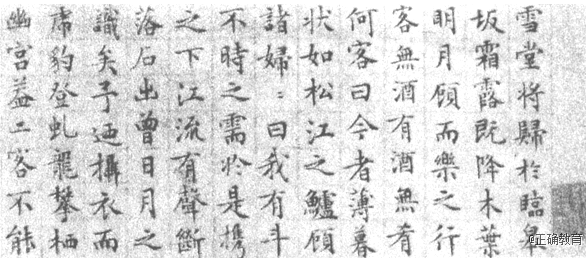 雪堂將歸於臨皋
坂霜露既降木葉
明月顧而樂之行
客無酒有酒無肴
何客曰今者薄暮
狀如松江之鱸顧
諸婦〻曰我有斗
不時之需於是携
之下江流有聲斷
落石出曾日月之
識矣予迺攝衣而
虎豹登虬龍攀栖
幽宮盖二客不能
@正确教育